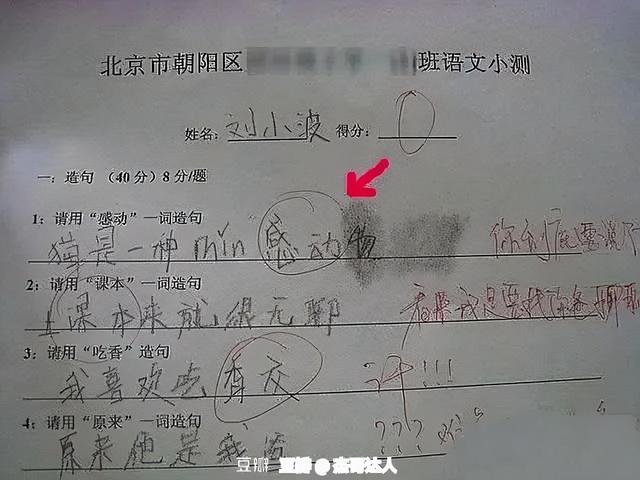 北京市朝阳区 班语文小测
姓名: 刘小波 得分: 0
一: 造句 （40分）8分/题
1: 请用“感动”一词造句
猫是一种min感动物
2: 请用“课本”一词造句
上课本来就很无聊
看来我是要找你爸聊聊
3: 请用“吃香”造句
我喜欢吃香交
!!!
4: 请用“原来”一词造句
原来他是我
???
豆瓣